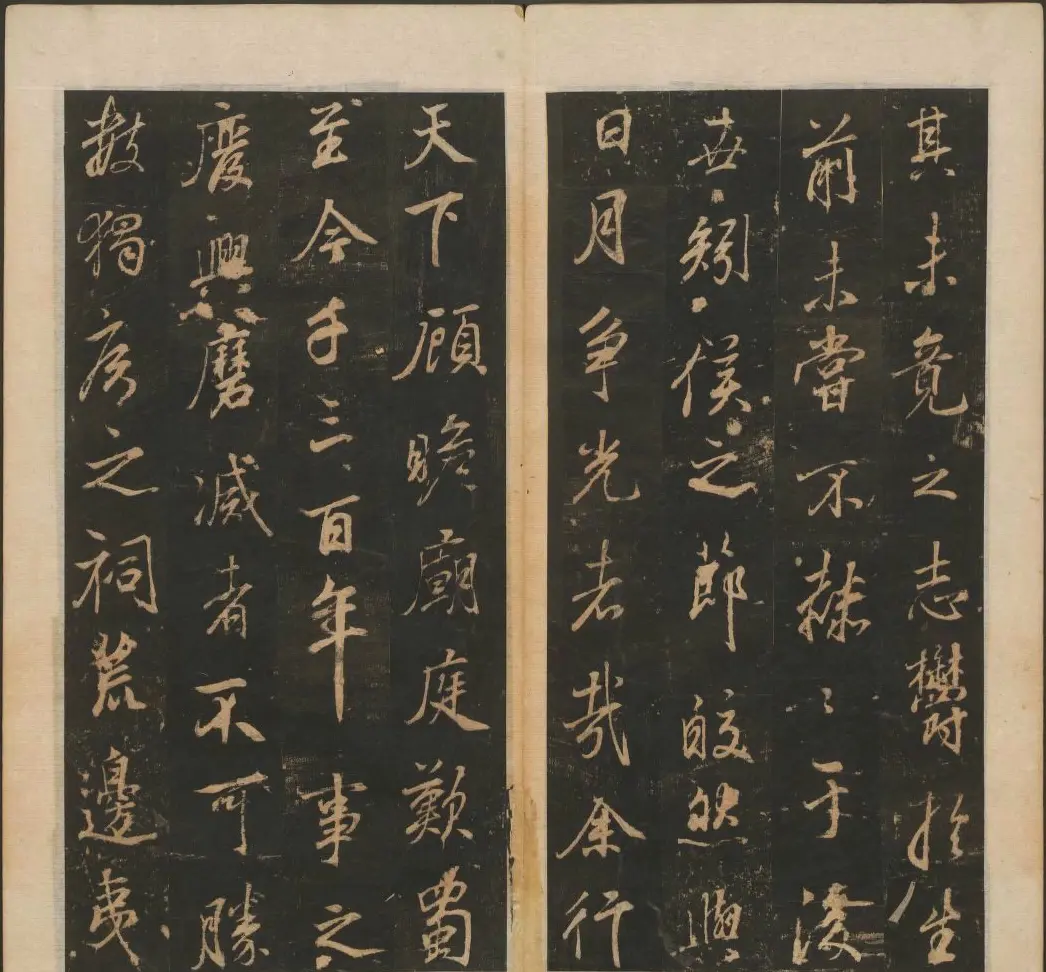 其未竟之志鬱於生
前未嘗不赫〻于後
世矧侯之節皎然與
日月爭光者哉余行
天下顧瞻廟庭歎蜀
至今千三百年事之
廢興磨滅者不可勝
數獨矦之祠荒邊夷